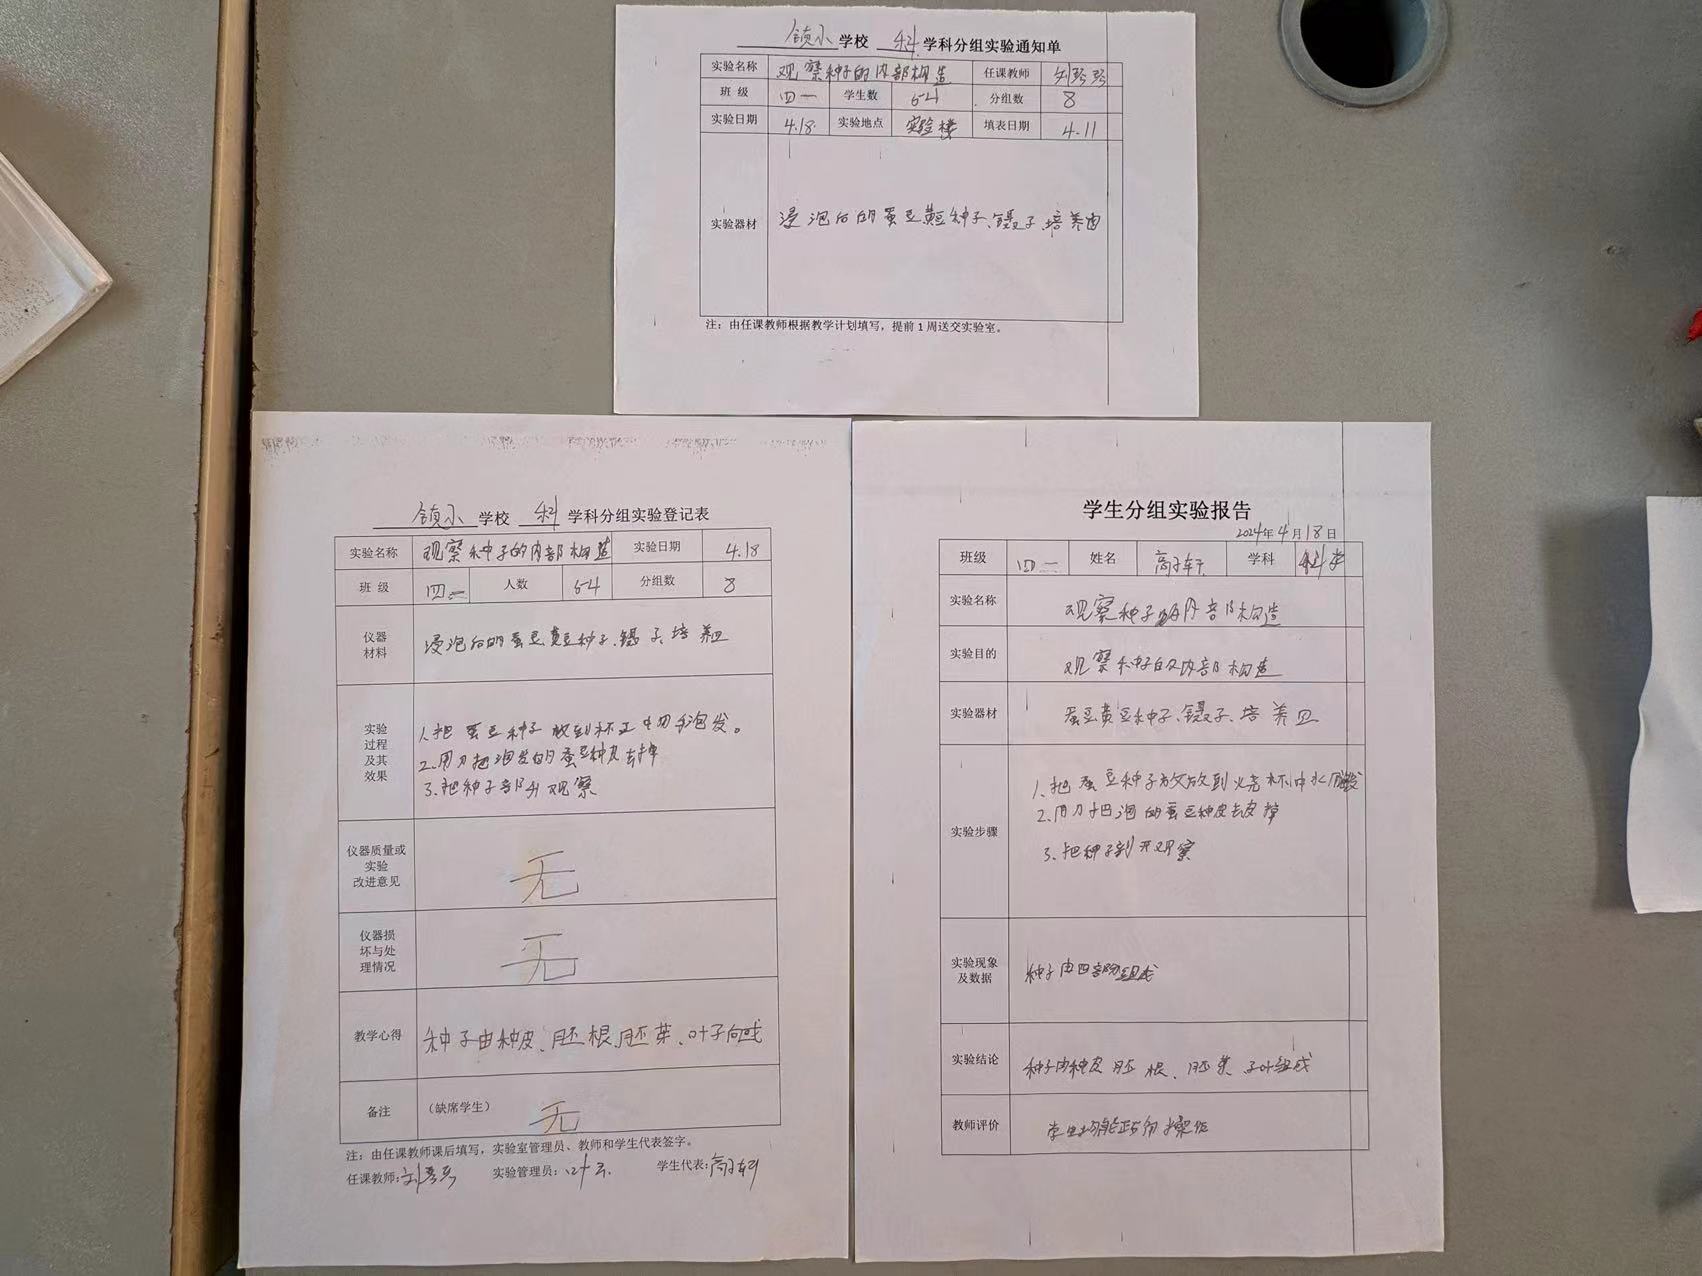 镇小 学校 科 学科分组实验通知单
实验名称 观察种子的内部构造 任课教师
班 级 四一 学生数 54 分组数 8
实验日期 4.18. 实验地点 实验楼 填表日期 4.11
实验器材 浸泡后的蚕豆黄豆种子、镊子、培养皿
注：由任课教师根据教学计划填写，提前1周送交实验室。
镇小 学校 科 学科分组实验登记表
实验名称 观察种子的内部构造 实验日期 4.18
班 级 四一 人数 54 分组数 8
仪器
材料
浸泡后的蚕豆黄豆种子、镊子、培养皿
实验
过程
及其
效果
1.把蚕豆种子放到杯 中 泡发。
2.用刀把泡发的蚕豆种皮去掉
3.把种子 观察
仪器质量或
实验
改进意见
无
仪器损
坏与处
理情况
无
教学心得 种子由种皮、胚根、胚芽、叶子 成
备注 （缺席学生） 无
注：由任课教师课后填写，实验室管理员、教师和学生代表签字。
任课教师: 实验管理员: 学生代表:
学生分组实验报告
2024年4月18日
班级 四一 姓名 学科 科学
实验名称 观察种子的内部构造
实验目的 观察种子的内部构造
实验器材 蚕豆黄豆种子、镊子、培养皿
实验步骤
1.把蚕豆种子放 到烧杯中水
2.用刀把泡的蚕豆种皮去 掉
3.把种子剖开观察
实验现象
及数据
种子由四部分组成
实验结论 种子由种皮 胚根、胚芽 子叶组成
教师评价 学生均能正确操作